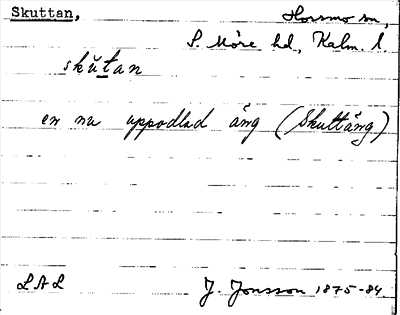 Skuttan, Hossmo sn,
S. Möre hd, Kalm. l.
skŭtan
en nu uppodlad äng (Skuttäng)
LAL J. Jonsson 1875-84